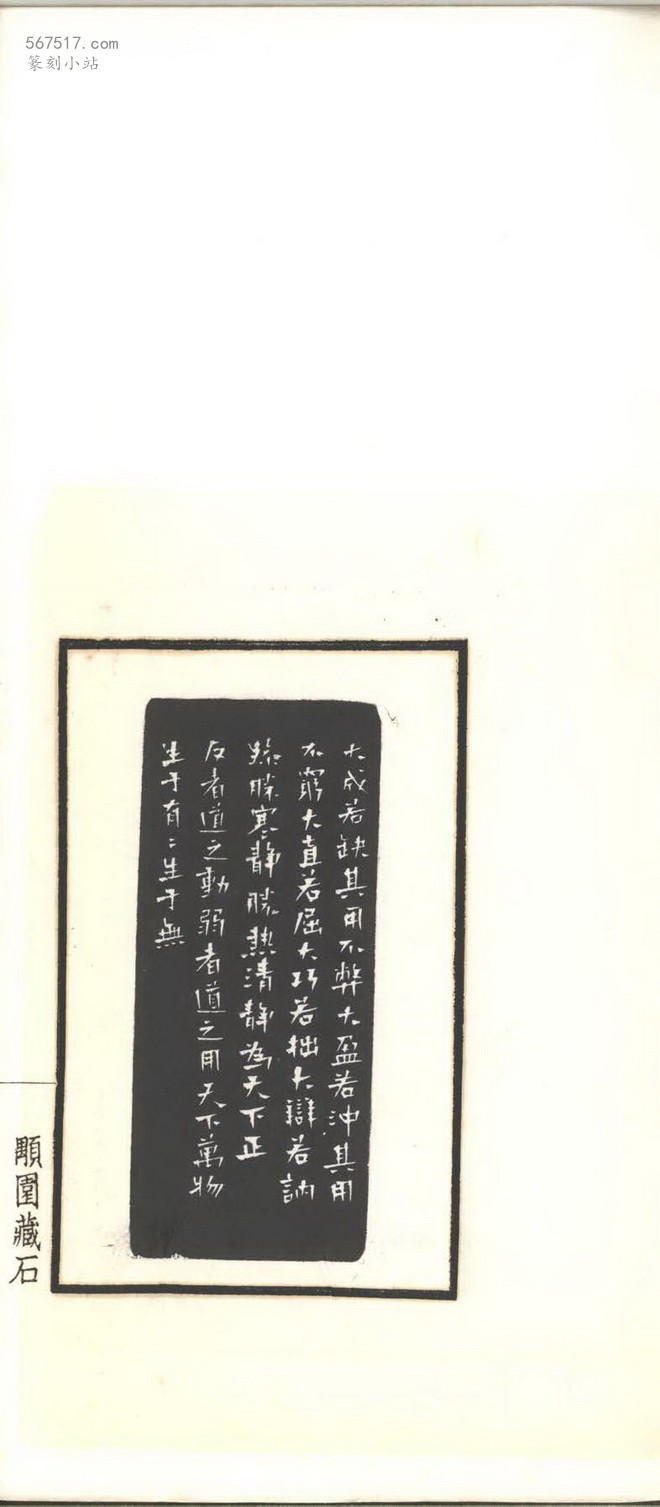 567517.com
篆刻小站
大成若缺其用不弊大盈若沖其用
不窮大直若屈大巧若拙大辯若訥
躁勝寒靜勝熱清靜為天下正
反者道之動弱者道之用天下萬物
生于有二生于無
顒園藏石